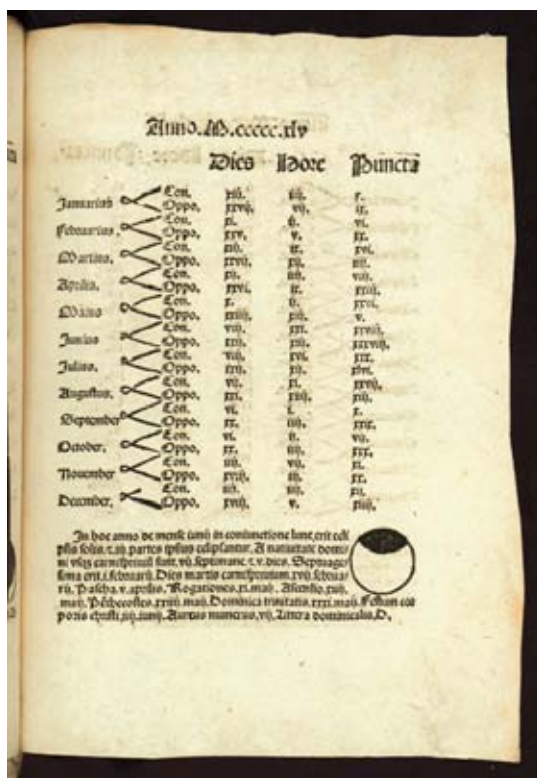 Anno. M.ccccc.xlv
Dies Hore Puncta
Januarius Con. xiij. iij. x.
Oppo. xxvij. vij. ix.
Februarius. Con. xi. ij. vi.
Oppo. xxv. v. xx.
Martius. Con. xiij. ix. xvi.
Oppo. xxvij. xij. iij.
Aprilis. Con. xij. iiij.
Oppo. xxvi. ix.
Maius Con. x. ij. xxvi.
Oppo. v.
Junius Con. xxi.
Oppo.
Julius. Con. xvi. xxx.
Oppo.
Augustus. Con. vij. xi.
Oppo.
September Con. vi. i. x.
Oppo. xx. xxix.
October. Con. vi. ij. vij.
Oppo. xx. xxx.
November Con. iiij. vij. xi.
Oppo. xviij. xx.
December. Con. xij.
Oppo. xviij. v. xiiij.
In hoc anno de mense iunij in coniunctione lune, erit ecli
psis solis. partes ipsius eclipsantur. A natiuitate domi
ni vsqz carnispriuiū sunt. vij. septimane. z. v. dies. Septuage
sima erit. i. februarij. Dies martis carnispriuium. xvij. februa
rij. Pascha. v. aprilis. Rogationes. xi. maij. Ascensio. xiiij.
maij. Pēthecostes. xxiiij. maij. Dominica trinitatis. xxxi. maij. Festum cor
poris christi. iiij. iunij. Aureus numerus. vij. Littera dominicalis. D.